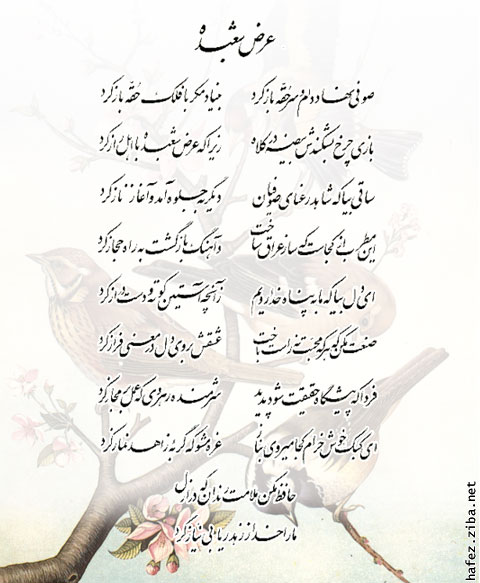 عرض شعبده
صوفی نهاد دام و سر حقه باز کرد بنیاد مکر با فلک حقه باز کرد
بازی چرخ بشکندش بیضه در کلاه زیرا که عرض شعبده با اهل راز کرد
ساقی بیا که شاهد رعنای صوفیان دیگر به جلوه آمد و آغاز ناز کرد
این مطرب از کجاست که ساز عراق ساخت و آهنگ بازگشت به راه حجاز کرد
ای دل بیا که ما به پناه خدا رویم زآنچه آستین کوته و دست دراز کرد
صنعت مکن که هر که محبت نه راست باخت عشقش به روی دل در معنی فراز کرد
فردا که پیشگاه حقیقت شود پدید شرمنده رهروی که عمل بر مجاز کرد
ای کبک خوش خرام کجا میروی بناز غره مشو که گربه زاهد نماز کرد
حافظ مکن ملامت رندان که در ازل
ما را خدا ز زهد ریا بی نیاز کرد
hafez.ziba.net